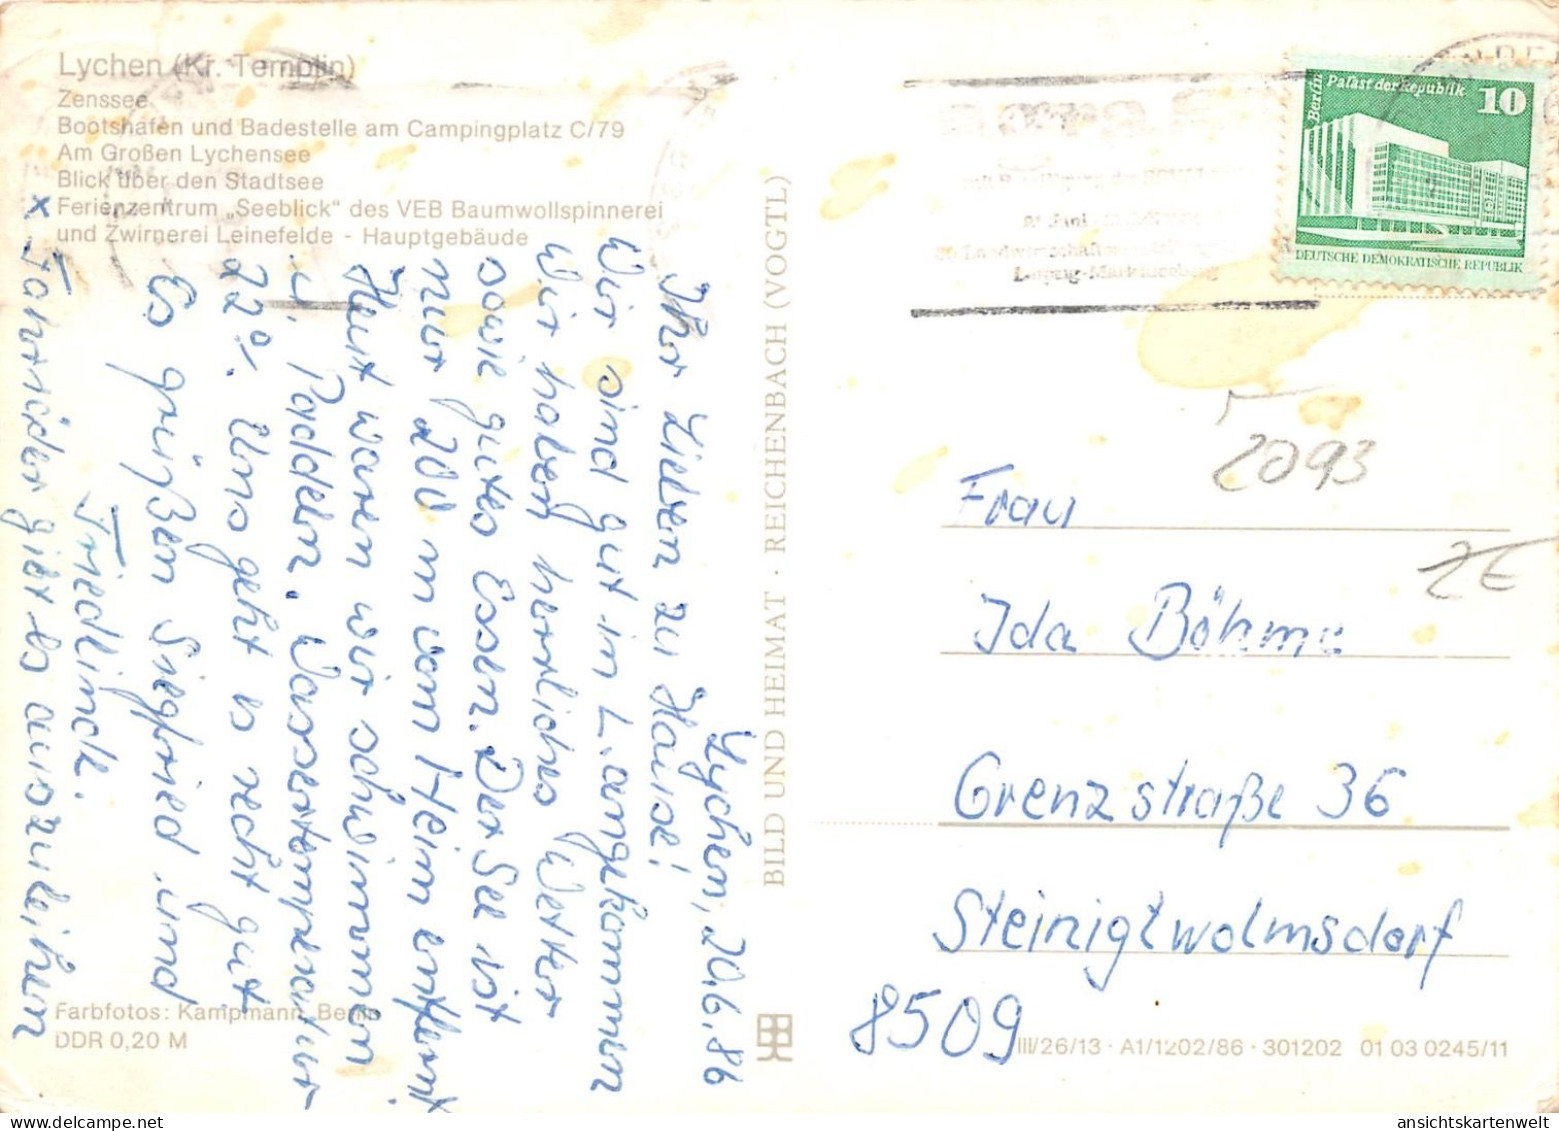 Lychen (Kr. Templin)
Zenssee
Bootshafen und Badestelle am Campingplatz C/79
Am Großen Lychensee
Blick über den Stadtsee
x Ferienzentrum „Seeblick“ des VEB Baumwollspinnerei
und Zwirnerei Leinefelde - Hauptgebäude
Lychen, 20.6.86
Ihr Lieben zu Hause!
Wir sind gut in L. angekommen
Wir haben herrliches Wetter
sowie gutes Essen. Der See ist
nur 200 m vom Heim entfernt
Heut waren wir schwimmen
u. Paddeln. Wassertemperatur
22°. Uns geht es recht gut
Es grüßen Siegfried und
Friedlinde.
Fahrräder gibt es auszuleihen
Farbfotos: Kampmann, Berlin
DDR 0,20 M
BILD UND HEIMAT · REICHENBACH (VOGTL)
Berlin
Palast der Republik
10
DEUTSCHE DEMOKRATISCHE REPUBLIK
2093
2€
Frau
Ida Böhme
Grenzstraße 36
Steinigtwolmsdorf
8509
III/26/13 · A1/1202/86 · 301202 01 03 0245/11
ansichtskartenwelt